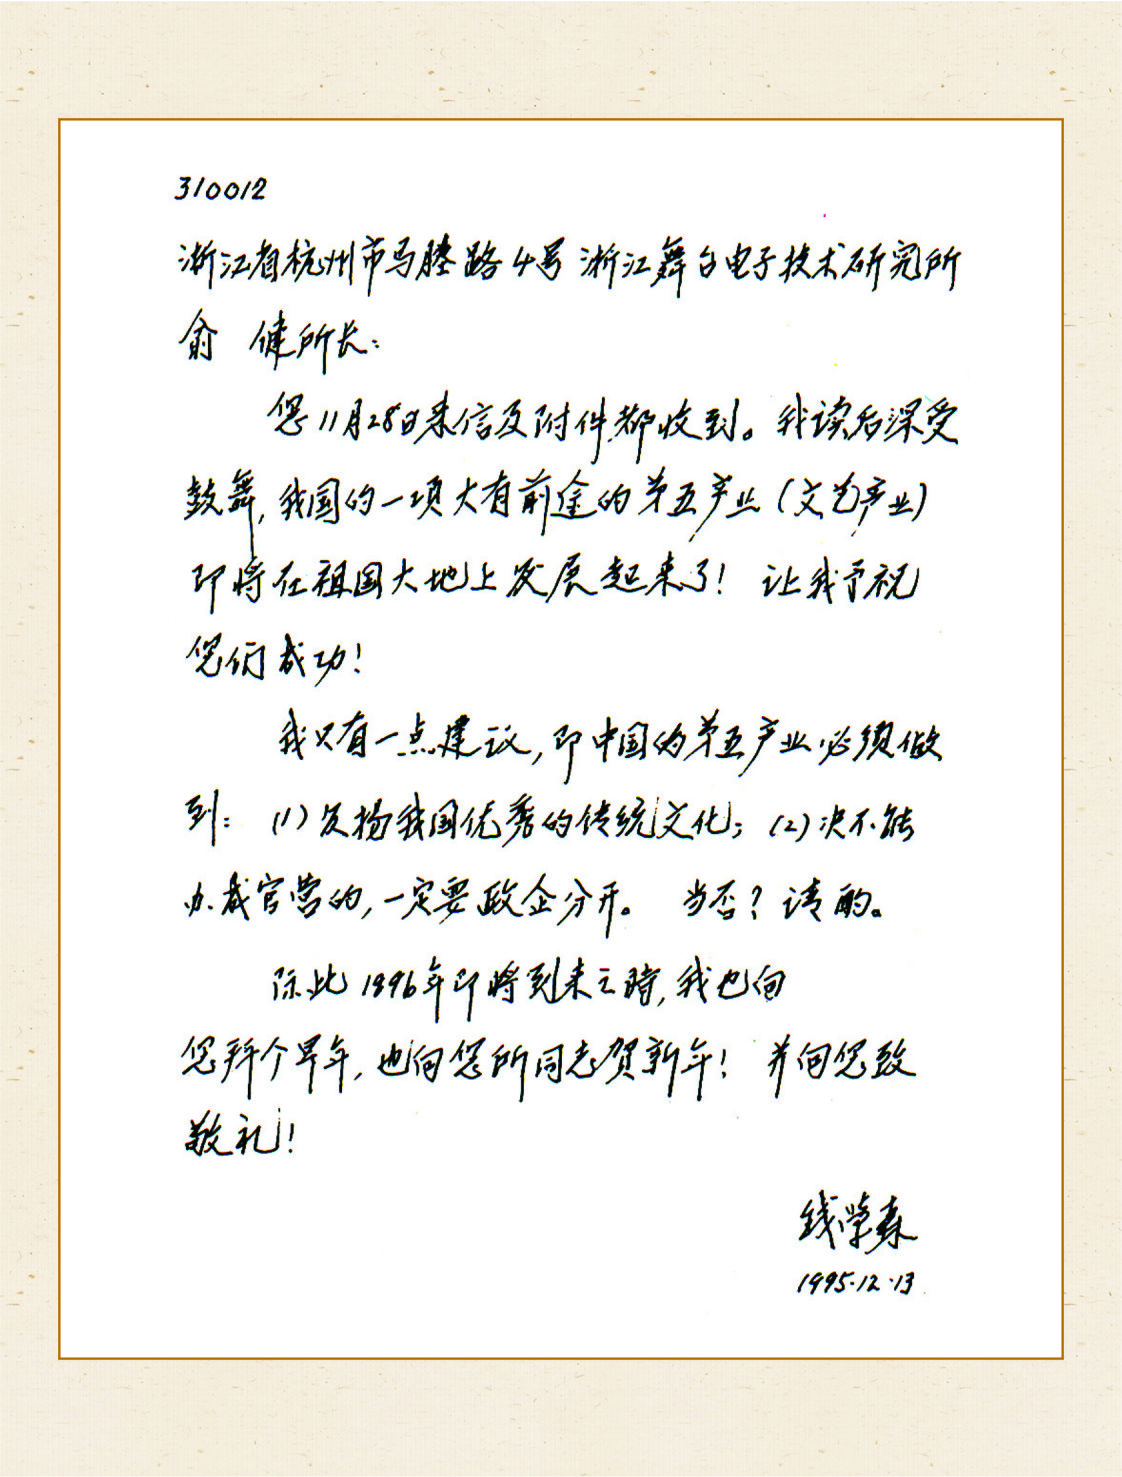 310012
浙江省杭州市马塍路4号浙江舞台电子技术研究所
俞 健所长:
您11月28日来信及附件都收到。我读后深受
鼓舞,我国的一项大有前途的第五产业(文艺产业)
即将在祖国大地上发展起来了! 让我予祝
您们成功!
我只有一点建议,即中国的第五产业必须做
到: (1)发扬我国优秀的传统文化; (2)决不能
办成官营的,一定要政企分开。 当否?请酌。
际此1996年即将到来之時,我也向
您拜个早年,也向您所同志贺新年! 并向您致
敬礼!
钱学森
1995.12.13